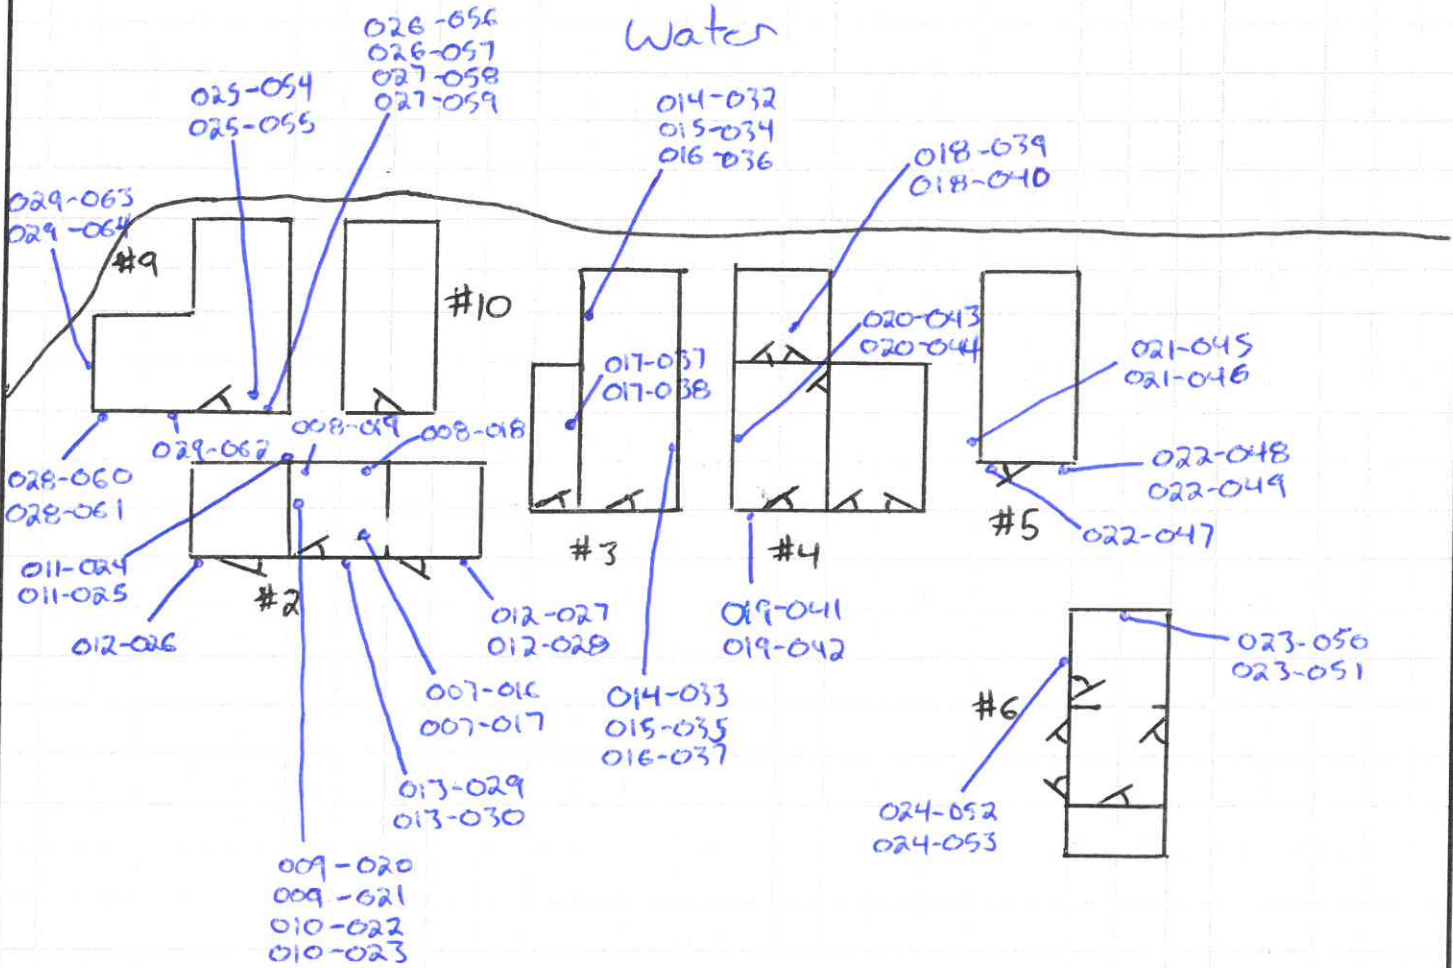 Water
026-056
026-057
027-058
027-059
025-054
025-055
014-032
015-034
016-036
018-039
018-040
029-063
029-064
#9
#10
017-037
017-038
020-043
020-044
021-045
021-046
008-019
008-018
029-062
028-060
028-061
022-048
022-049
022-047
#5
#3
#4
011-024
011-025
#2
012-026
012-027
012-028
019-041
019-042
023-050
023-051
007-016
007-017
014-033
015-035
016-037
#6
013-029
013-030
024-052
024-053
009-020
009-021
010-022
010-023